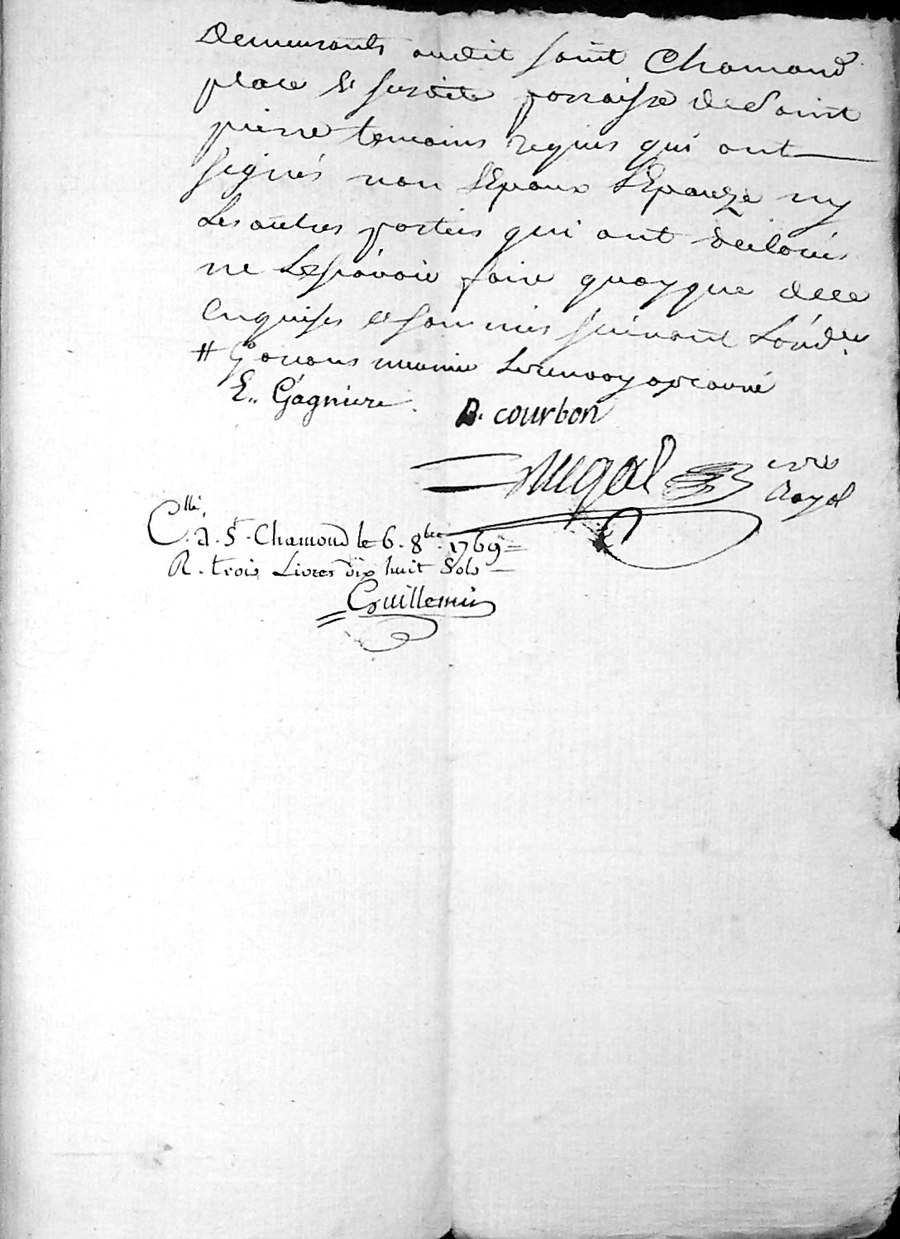 Demeurants audit saint Chamond
place & susdite parraisse de Saint
pierre temoins requis qui ont
signés non l'Epoux l'Epouze ny
Les autres parties qui ont declarés
ne Le sçavoir faire quoyque de ce
Enquises et sommés suivant L'ord.
# Gonons meunier Le renvoy aprouvé
E. Gagniere. B. courbon
nore
Royal
C.lle à St. Chamond le 6. 8bre 1769
R. trois Livres dix huit Sols
Guillemin